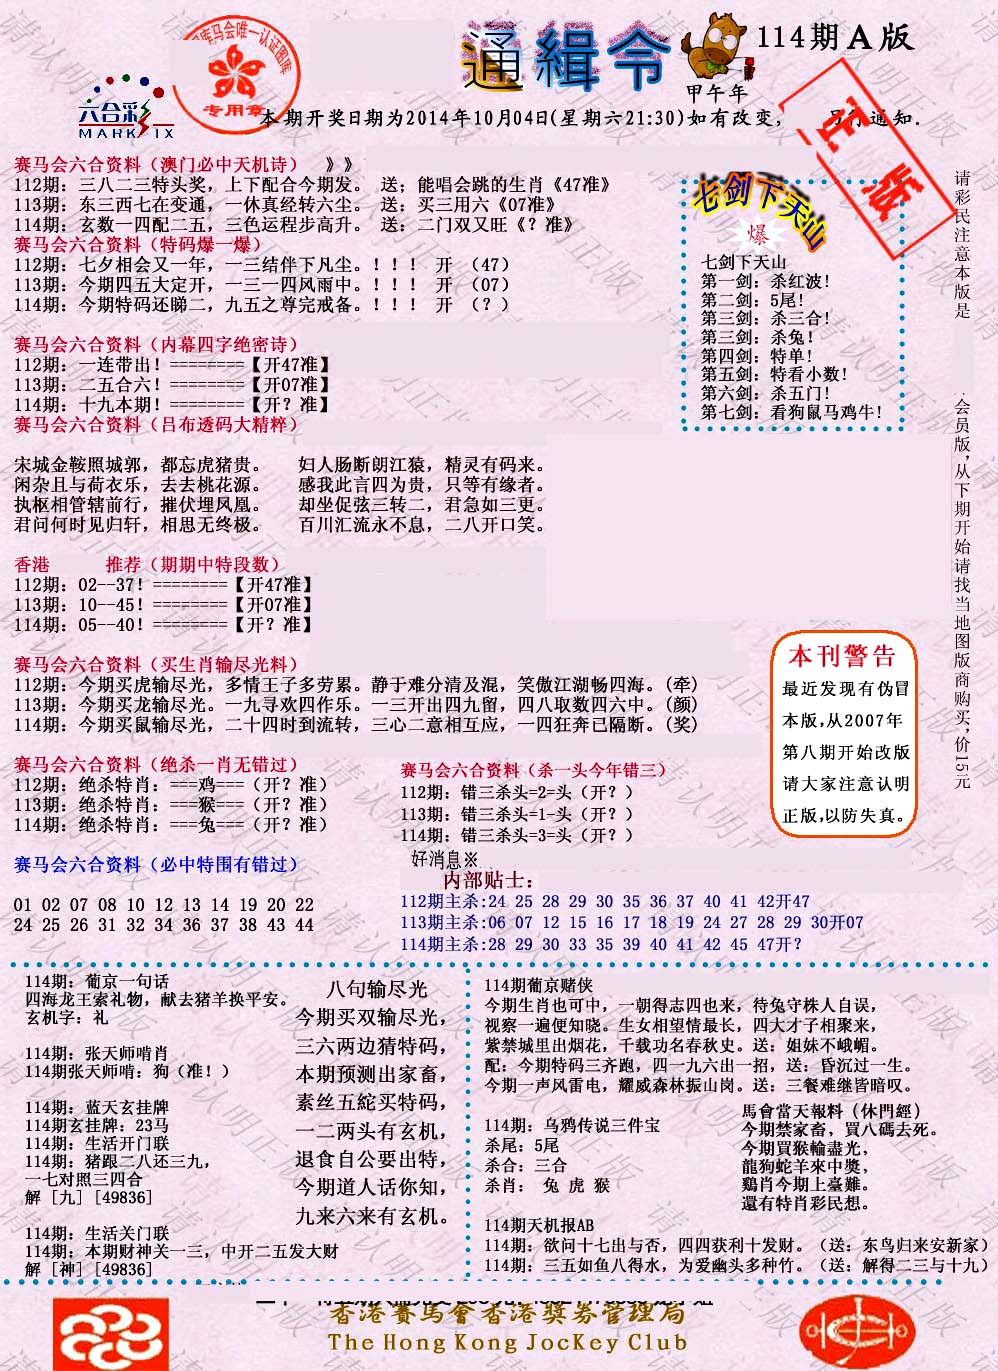 通緝令
114期A版
甲午年
库马会唯一认证图库
专用章
六合彩
MARK SIX
本期开奖日期为2014年10月04日(星期六21:30)如有改变, 另行通知.
正版
赛马会六合资料（澳门必中天机诗） 》》
112期：三八二三特头奖，上下配合今期发。 送；能唱会跳的生肖《47准》
113期：东三西七在变通，一休真经转六尘。 送：买三用六《07准》
114期：玄数一四配二五，三色运程步高升。 送：二门双又旺《？准》
赛马会六合资料（特码爆一爆）
112期：七夕相会又一年，一三结伴下凡尘。！！！ 开 （47）
113期：今期四五大定开，一三一四风雨中。！！！ 开 （07）
114期：今期特码还睇二，九五之尊完戒备。！！！ 开 （？）
赛马会六合资料（内幕四字绝密诗）
112期：一连带出！========【开47准】
113期：二五合六！========【开07准】
114期：十九本期！========【开？准】
赛马会六合资料（吕布透码大精粹）
宋城金鞍照城郭，都忘虎猪贵。 妇人肠断朗江猿，精灵有码来。
闲杂且与荷衣乐，去去桃花源。 感我此言四为贵，只等有缘者。
执枢相管辖前行，摧伏埋凤凰。 却坐促弦三转二，君急如三更。
君问何时见归轩，相思无终极。 百川汇流永不息，二八开口笑。
香港 推荐（期期中特段数）
112期：02--37！========【开47准】
113期：10--45！========【开07准】
114期：05--40！========【开？准】
赛马会六合资料（买生肖输尽光料）
112期：今期买虎输尽光，多情王子多劳累。静于难分清及混，笑傲江湖畅四海。(牵)
113期：今期买龙输尽光。一九寻欢四作乐。一三开出四九留，四八取数四六中。(颜)
114期：今期买鼠输尽光，二十四时到流转，三心二意相互应，一四狂奔已隔断。(奖)
赛马会六合资料（绝杀一肖无错过）
112期：绝杀特肖：===鸡===（开？准）
113期：绝杀特肖：===猴===（开？准）
114期：绝杀特肖：===兔===（开？准）
赛马会六合资料（必中特围有错过）
01 02 07 08 10 12 13 14 19 20 22
24 25 26 31 32 34 36 37 38 43 44
赛马会六合资料（杀一头今年错三）
112期：错三杀头=2=头（开？）
113期：错三杀头=1-头（开？）
114期：错三杀头=3=头（开？）
好消息※
内部贴士：
112期主杀:24 25 28 29 30 35 36 37 40 41 42开47
113期主杀:06 07 12 15 16 17 18 19 24 27 28 29 30开07
114期主杀:28 29 30 33 35 39 40 41 42 45 47开?
七剑下天山
爆
七剑下天山
第一剑：杀红波!
第二剑：5尾!
第三剑：杀三合!
第三剑：杀兔!
第四剑：特单!
第五剑：特看小数!
第六剑：杀五门!
第七剑：看狗鼠马鸡牛!
请彩民注意本版是
会员版,从下期开始请找当地图版商购买,价15元
本刊警告
最近发现有伪冒
本版,从2007年
第八期开始改版
请大家注意认明
正版,以防失真。
114期：葡京一句话
四海龙王索礼物，献去猪羊换平安。
玄机字：礼
114期：张天师啃肖
114期张天师啃：狗（准！）
114期：蓝天玄挂牌
114期玄挂牌：23马
114期：生活开门联
114期：猪跟二八还三九，
一七对照三四合
解 [九] [49836]
114期：生活关门联
114期：本期财神关一三，中开二五发大财
解 [神] [49836]
八句输尽光
今期买双输尽光，
三六两边猜特码，
本期预测出家畜，
素丝五紽买特码，
一二两头有玄机，
退食自公要出特，
今期道人话你知，
九来六来有玄机。
114期葡京赌侠
今期生肖也可中，一朝得志四也来，待兔守株人自误，
视察一遍便知晓。生女相望情最长，四大才子相聚来，
紫禁城里出烟花，千载功名春秋史。送：姐妹不峨嵋。
配：今期特码三齐跑，四一九六出一招，送：昏沉过一生。
今期一声风雷电，耀威森林振山岗。送：三餐难继皆暗叹。
114期：乌鸦传说三件宝
杀尾：5尾
杀合：三合
杀肖： 兔 虎 猴
馬會當天報料（休門經）
今期禁家畜，買八碼去死。
今期買猴輸盡光，
龍狗蛇羊來中獎，
鷄肖今期上臺難。
還有特肖彩民想。
114期天机报AB
114期：欲问十七出与否，四四获利十发财。（送：东鸟归来安新家）
114期：三五如鱼八得水，为爱幽头多种竹。（送：解得二三与十九）
香港賽馬會香港獎券管理局
The Hong Kong JocKey Club